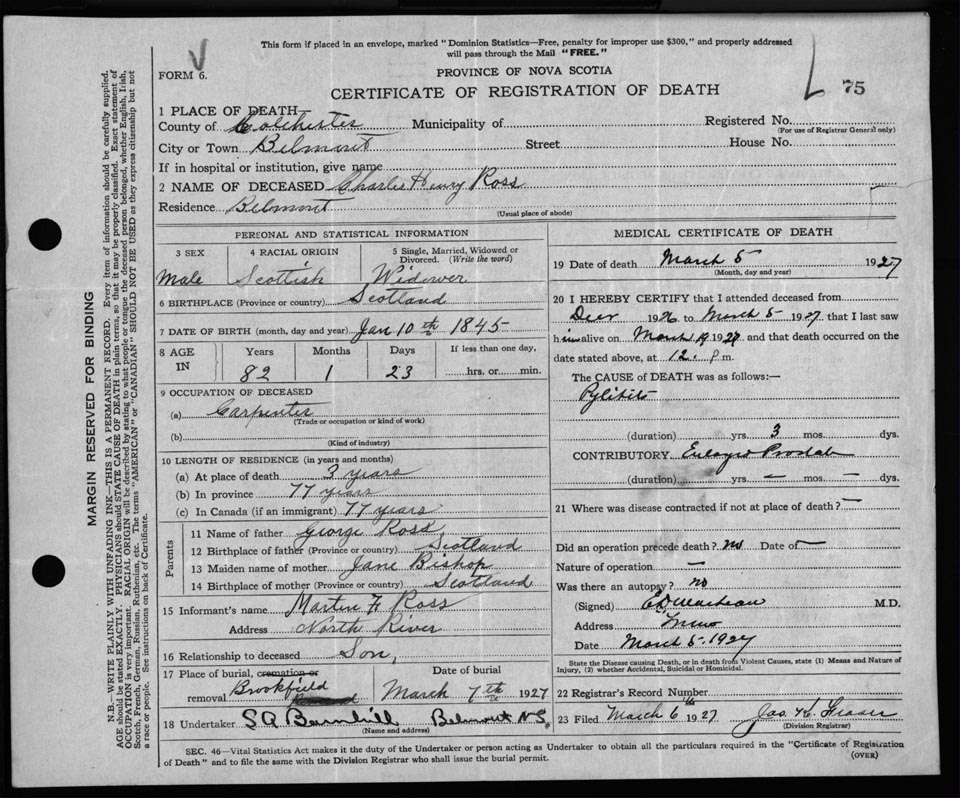 This form if placed in an envelope, marked "Dominion Statistics—Free, penalty for improper use $300," and properly addressed
will pass through the Mail "FREE."
FORM 6.
PROVINCE OF NOVA SCOTIA
CERTIFICATE OF REGISTRATION OF DEATH
75
1 PLACE OF DEATH—
County of Colchester Municipality of Registered No.
(For use of Registrar General only)
City or Town Belmont Street House No.
If in hospital or institution, give name
2 NAME OF DECEASED Charles Henry Ross
Residence Belmont
(Usual place of abode)
PERSONAL AND STATISTICAL INFORMATION
3 SEX 4 RACIAL ORIGIN 5 Single, Married, Widowed or
Divorced. (Write the word)
Male Scottish Widower
6 BIRTHPLACE (Province or country) Scotland
7 DATE OF BIRTH (month, day and year) Jan 10th 1845
8 AGE IN Years Months Days If less than one day,
82 1 23 hrs. or min.
9 OCCUPATION OF DECEASED
(a) Carpenter
(Trade or occupation or kind of work)
(b)
(Kind of industry)
10 LENGTH OF RESIDENCE (in years and months)
(a) At place of death 3 years
(b) In province 77 years
(c) In Canada (if an immigrant) 77 years
Parents
11 Name of father George Ross
12 Birthplace of father (Province or country) Scotland
13 Maiden name of mother Jane Bishop
14 Birthplace of mother (Province or country) Scotland
15 Informant's name Martin H Ross
Address North River
16 Relationship to deceased Son,
17 Place of burial, cremation or Date of burial
removal Brookfield March 7th 1927
18 Undertaker S A Barnhill Belmont N S.
(Name and address)
MEDICAL CERTIFICATE OF DEATH
19 Date of death March 5 1927
(Month, day and year)
20 I HEREBY CERTIFY that I attended deceased from
Decr 1926 to March 5 1927 that I last saw
him alive on March 1927 and that death occurred on the
date stated above, at 12. p m.
The CAUSE OF DEATH was as follows:—
(duration) yrs. 3 mos. dys.
CONTRIBUTORY Enlarged Prostate
(duration) yrs. — mos. — dys.
21 Where was disease contracted if not at place of death? —
Did an operation precede death? no Date of —
Nature of operation —
Was there an autopsy? no
(Signed) M.D.
Address Truro
Date March 5. 1927
State the Disease causing Death, or in death from Violent Causes, state (1) Means and Nature of
Injury, (2) whether Accidental, Suicidal or Homicidal.
22 Registrar's Record Number
23 Filed March 6th 1927 Jas. H. Fraser
(Division Registrar)
SEC. 46—Vital Statistics Act makes it the duty of the Undertaker or person acting as Undertaker to obtain all the particulars required in the "Certificate of Registration
of Death" and to file the same with the Division Registrar who shall issue the burial permit.
(OVER)
MARGIN RESERVED FOR BINDING
N.B.—WRITE PLAINLY WITH UNFADING INK—THIS IS A PERMANENT RECORD. Every item of information should be carefully supplied.
AGE should be stated EXACTLY. PHYSICIANS should STATE CAUSE OF DEATH in plain terms, so that it may be properly classified. Exact statement of
OCCUPATION is very important. RACIAL ORIGIN will be described by stating to what people or tongue the deceased person belonged, whether English, Irish,
Scotch, French, German, Russian, Ruthenian, etc. The terms "AMERICAN" or "CANADIAN" SHOULD NOT BE USED as they express citizenship but not
a race or people. See instructions on back of Certificate.